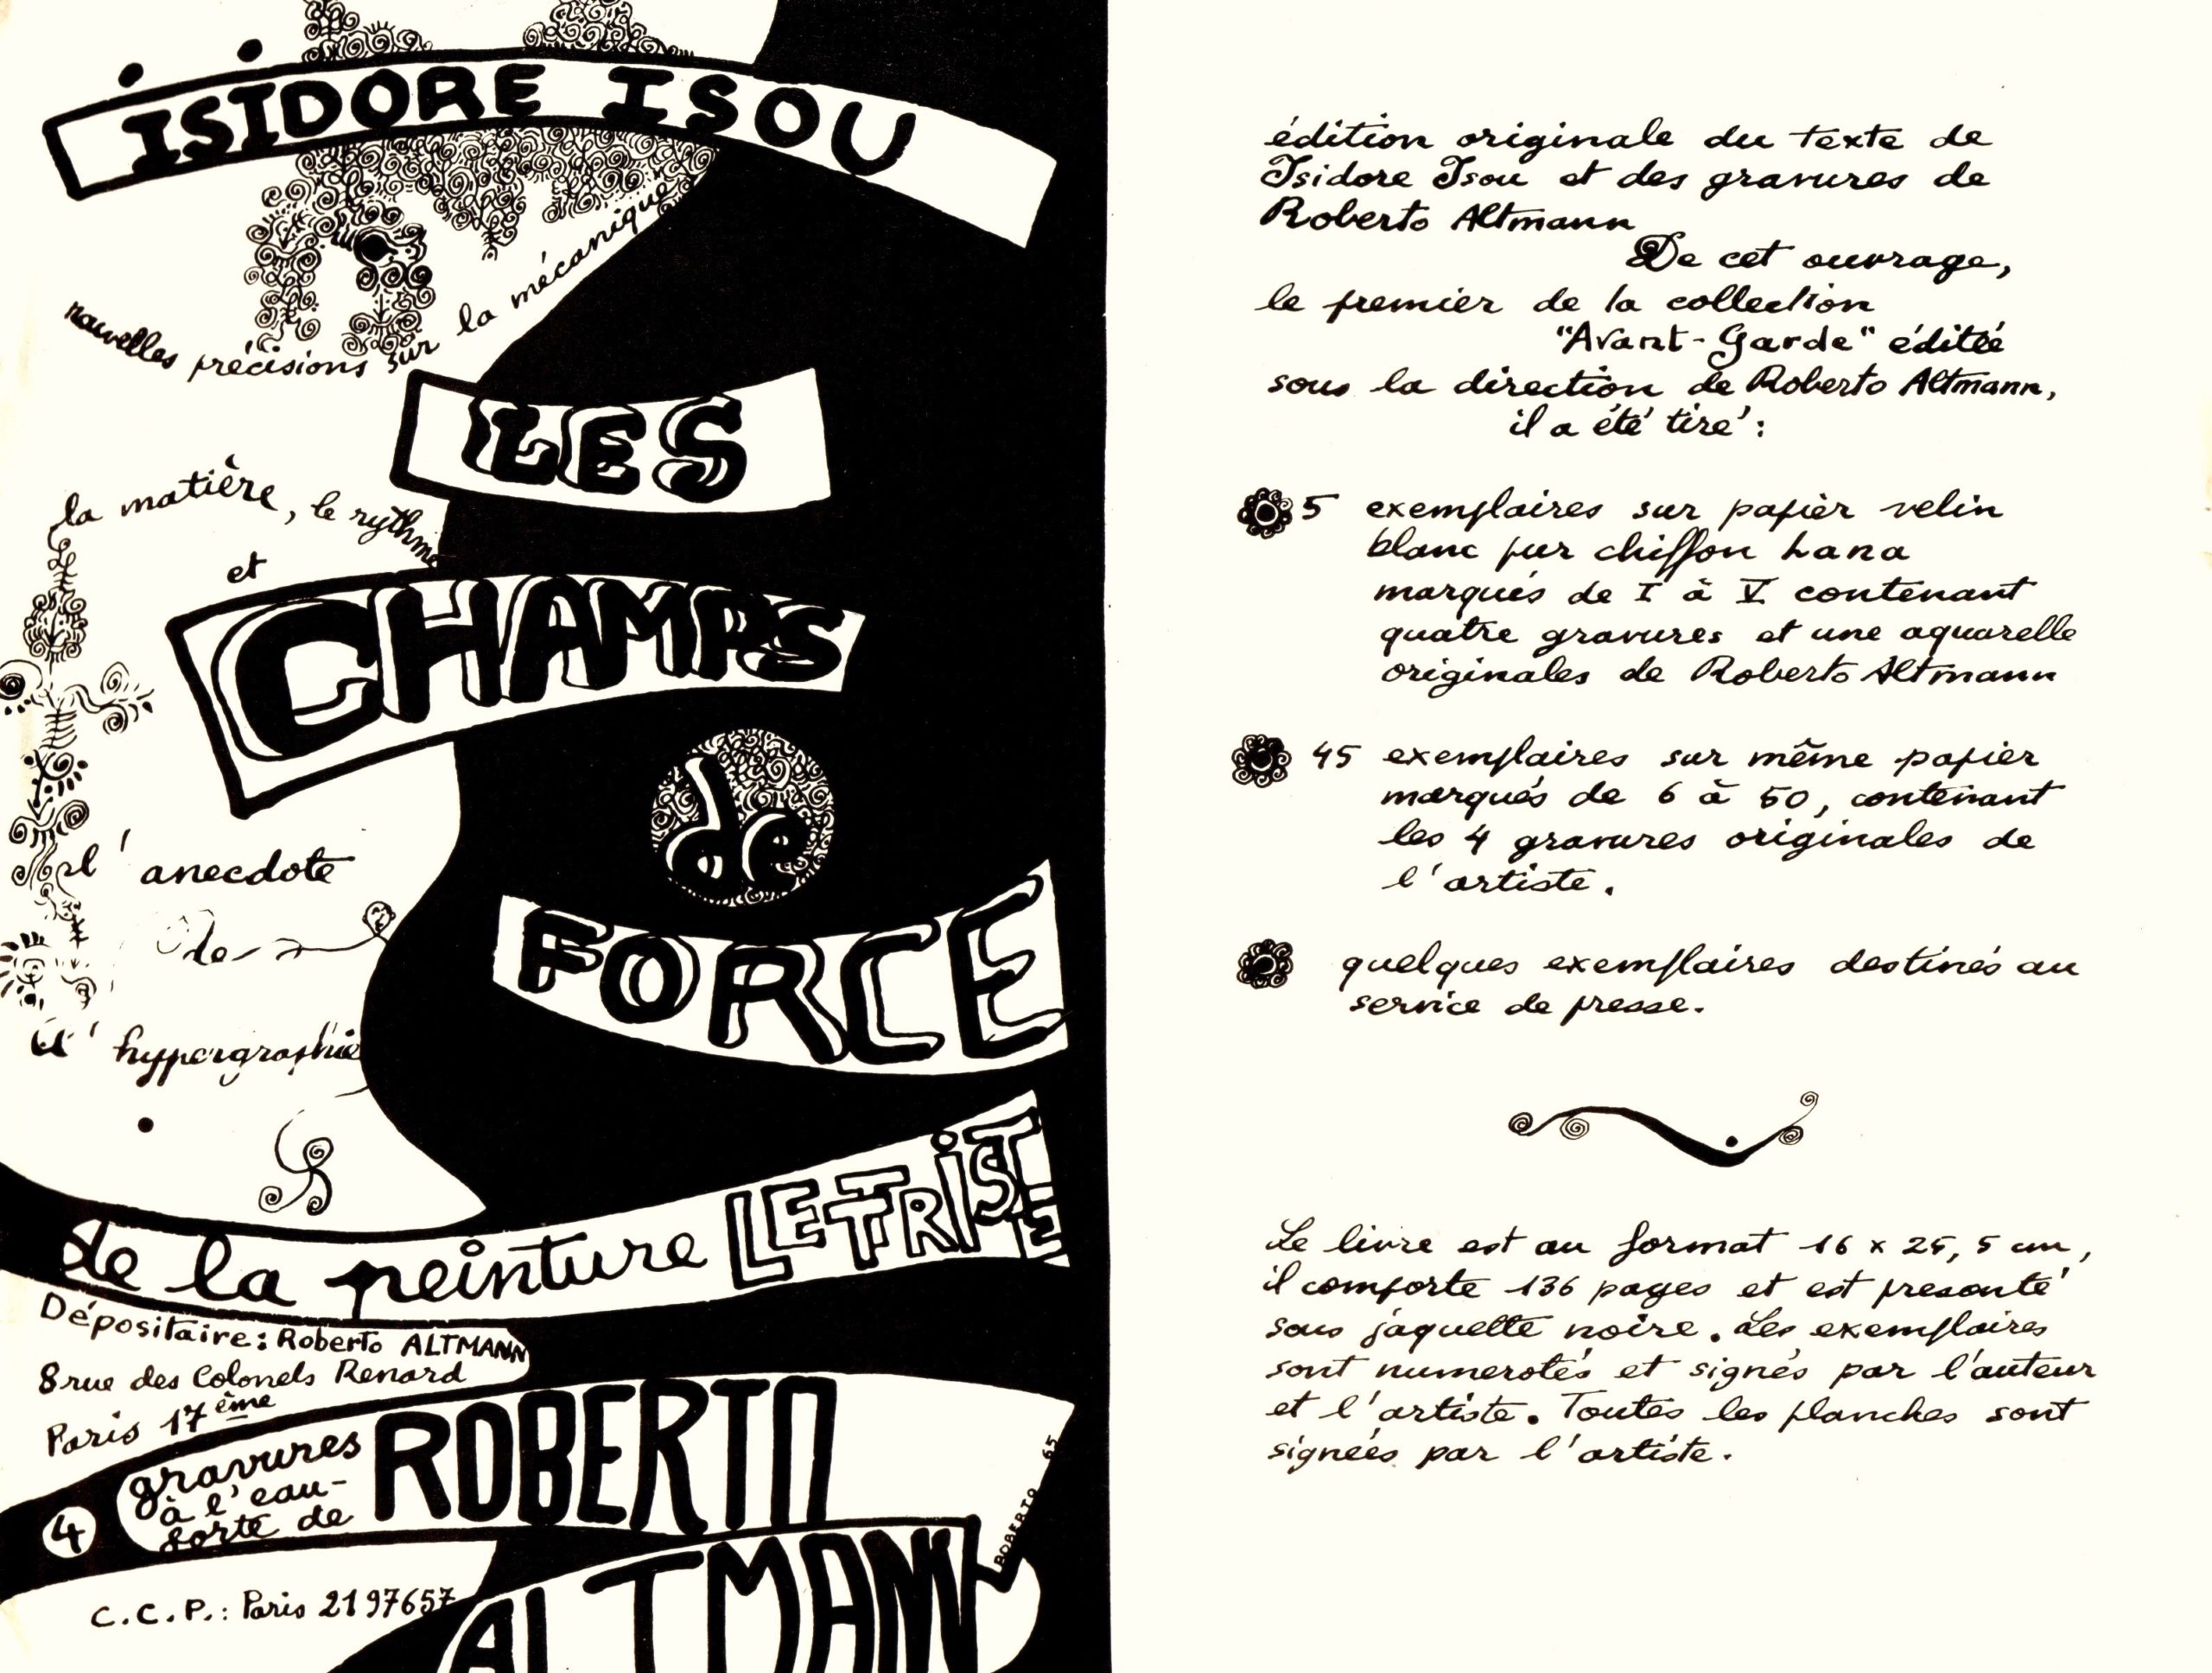 ISIDORE ISOU
nouvelles précisions sur la mécanique
LES
la matière, le rythme
et
CHAMPS
de
l'anecdote
de
FORCE
l'hypergraphie
de la peinture LETTRISTE
Dépositaire: Roberto ALTMANN
8 rue des Colonels Renard
Paris 17ème
4 gravures
à l'eau-
forte de
ROBERTO
ROBERTO 65
ALTMANN
C.C.P.: Paris 2197657
édition originale du texte de
Isidore Isou et des gravures de
Roberto Altmann
De cet ouvrage,
le premier de la collection
"Avant-Garde" éditée
sous la direction de Roberto Altmann,
il a été tiré:
5 exemplaires sur papier velin
blanc pur chiffon Lana
marqués de I à V contenant
quatre gravures et une aquarelle
originales de Roberto Altmann
45 exemplaires sur même papier
marqués de 6 à 50, contenant
les 4 gravures originales de
l'artiste.
quelques exemplaires destinés au
service de presse.
Le livre est au format 16 x 25,5 cm,
il comporte 136 pages et est presenté
sous jaquette noire. Les exemplaires
sont numerotés et signés par l'auteur
et l'artiste. Toutes les planches sont
signées par l'artiste.